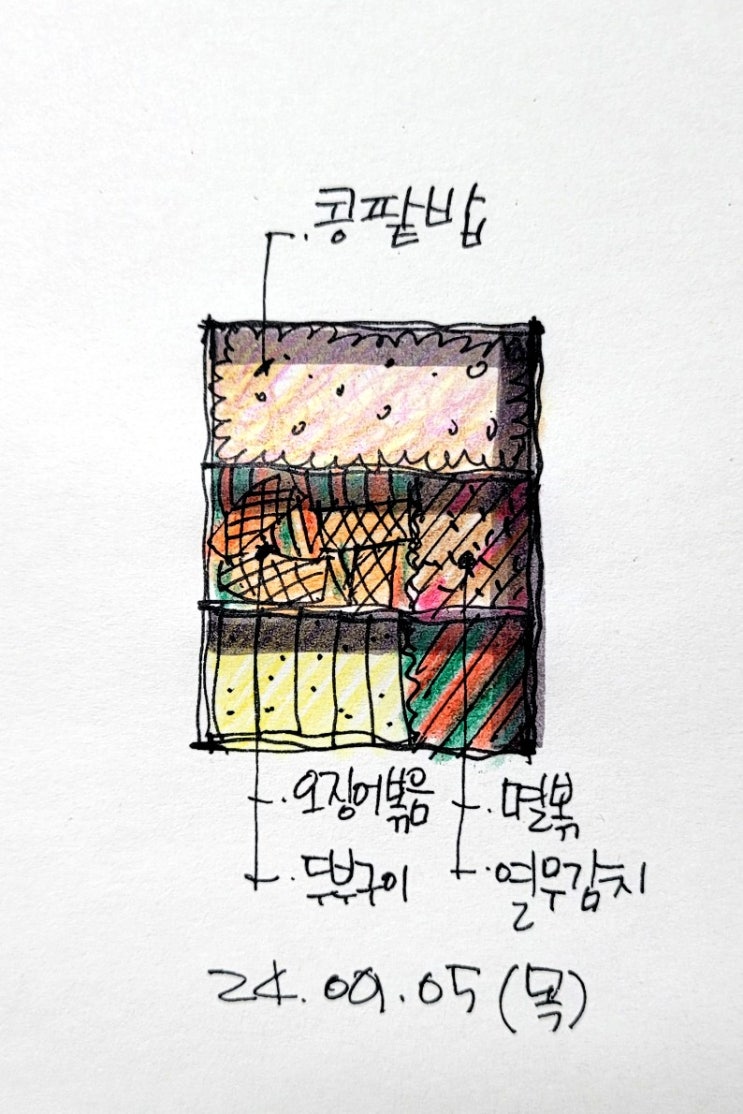 콩팥밥
오징어볶음
멸볶
두부구이
열무김치
24.09.05 (목)